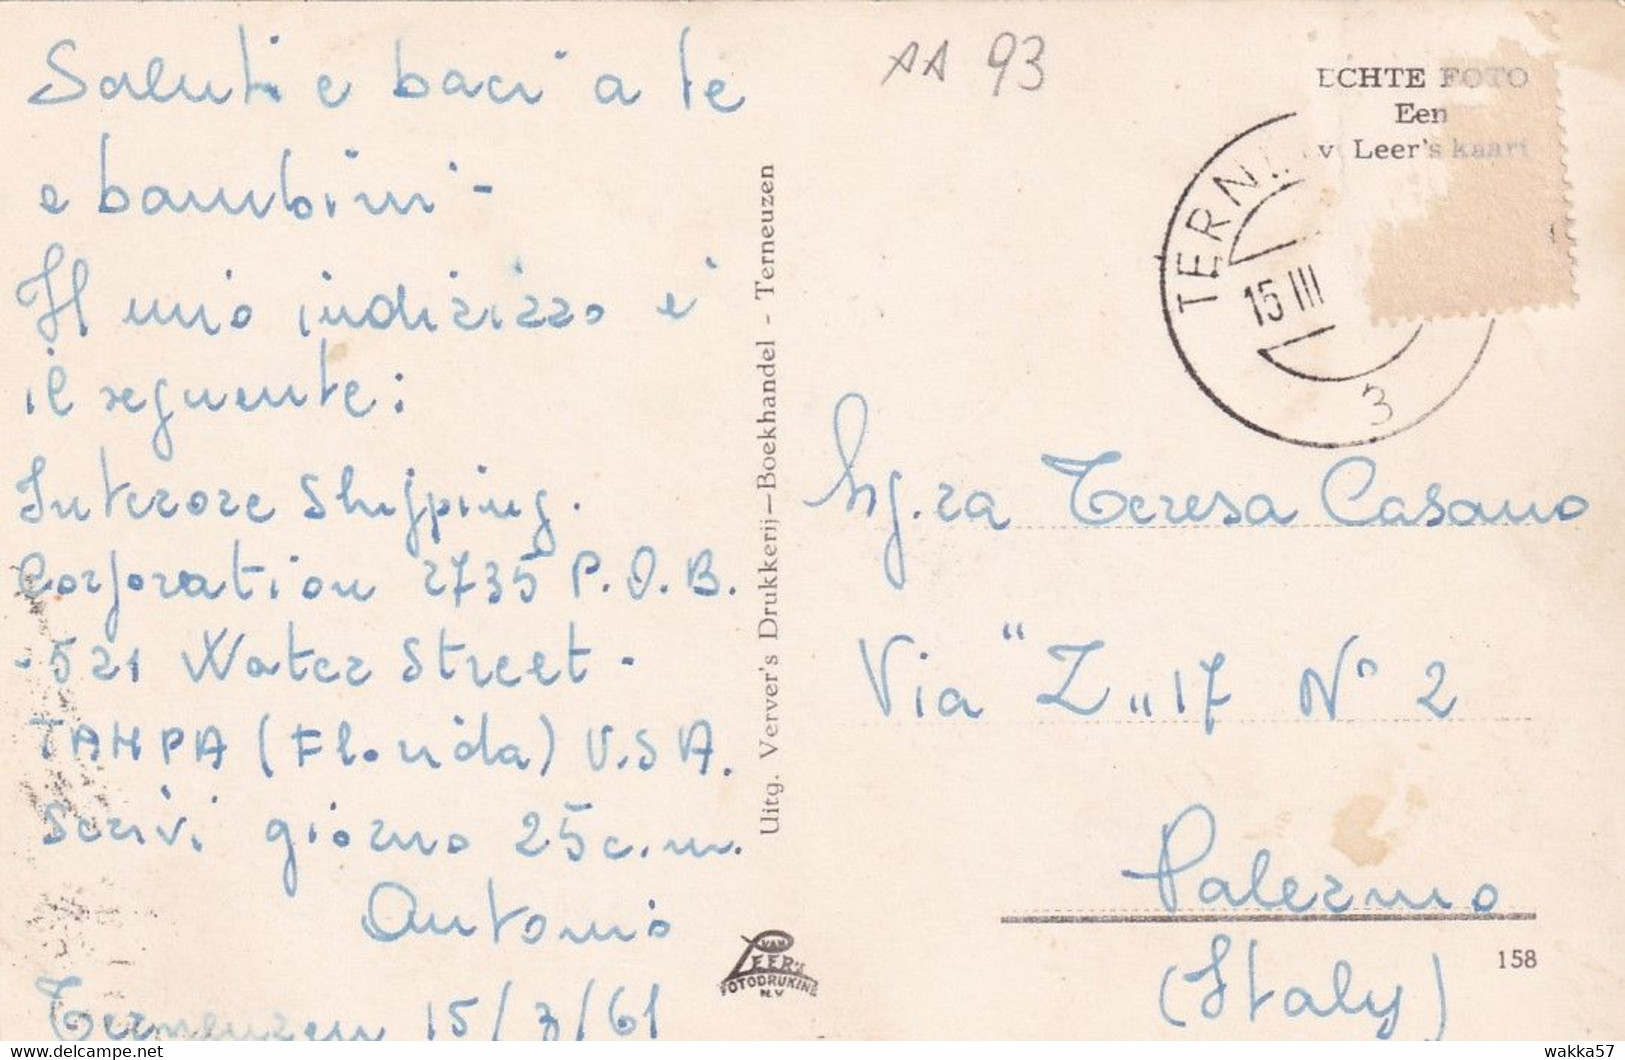 Saluti e baci a te
e bambini -
Il mio indirizzo e'
il seguente:
Interore Shipping.
Corporation 2735 P.O.B.
- 521 Water Street -
TAMPA (Florida) U.S.A.
Scrivi giorno 25 c.m.
Antonio
Terneuzen 15/3/61
Uitg. Verver's Drukkerij—Boekhandel - Terneuzen
VAN
LEER'S
FOTODRUKIND
N.V
AA 93
ECHTE FOTO
Een
v. Leer's kaart
TERN
15 III
3
Sig.ra Teresa Casano
Via "Z" 17 N° 2
Palermo
(Italy)
158
wakka57